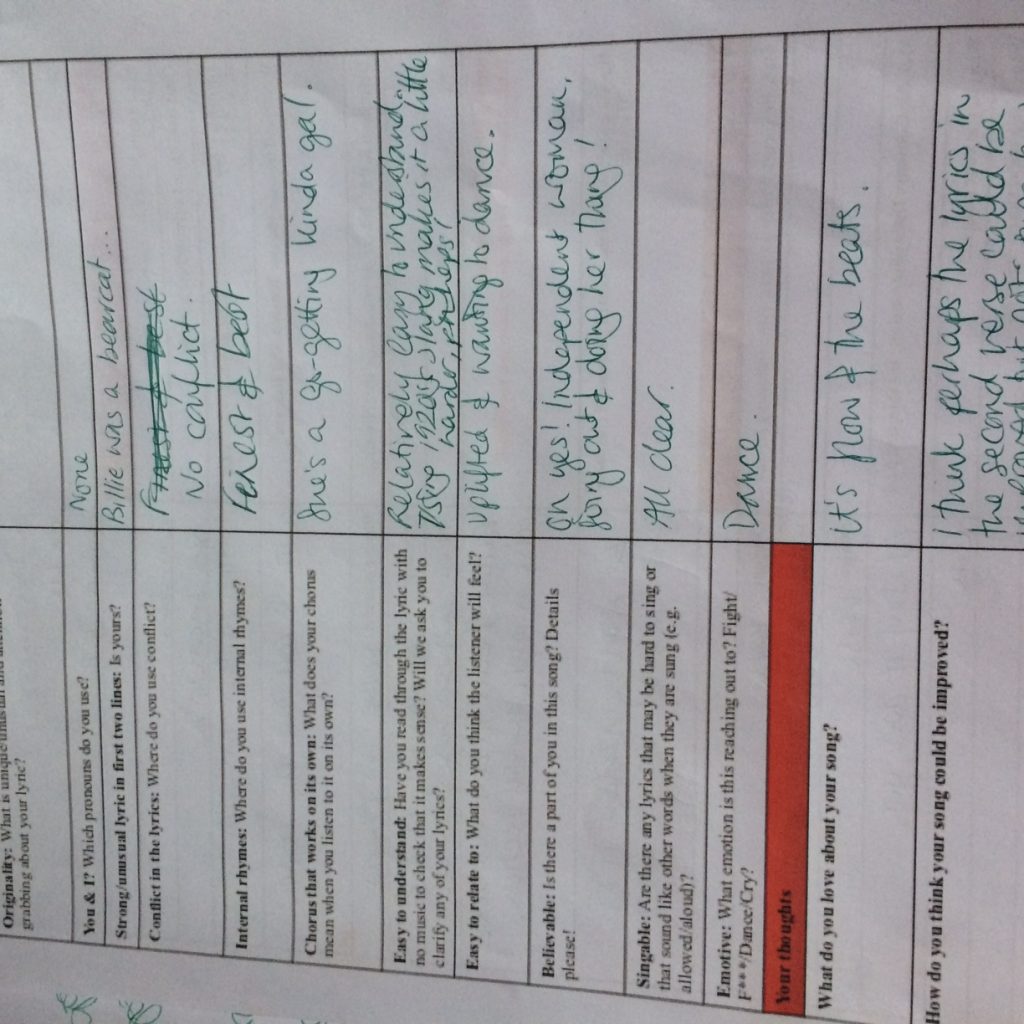 Originality: What is unique/unusual and attention
grabbing about your lyric?
You & I? Which pronouns do you use?
None
Strong/unusual lyric in first two lines: Is yours?
Billie was a bearcat...
Conflict in the lyrics: Where do you use conflict?
No conflict.
Internal rhymes: Where do you use internal rhymes?
Finest & best
Chorus that works on its own: What does your chorus
mean when you listen to it on its own?
She's a go-getting kinda gal.
Easy to understand: Have you read through the lyric with
no music to check that it makes sense? Will we ask you to
clarify any of your lyrics?
Relatively easy to understand.
Using 1920s slang makes it a little
harder, perhaps!
Easy to relate to: What do you think the listener will feel?
Uplifted & wanting to dance.
Believable: Is there a part of you in this song? Details
please!
Oh yes! Independent woman,
going out & doing her thang!
Singable: Are there any lyrics that may be hard to sing or
that sound like other words when they are sung (e.g.
allowed/aloud)?
All clear.
Emotive: What emotion is this reaching out to? Fight/
F***/Dance/Cry?
Dance.
Your thoughts
What do you love about your song?
It's flow & the beats.
How do you think your song could be improved?
I think perhaps the lyrics in
the second verse could be